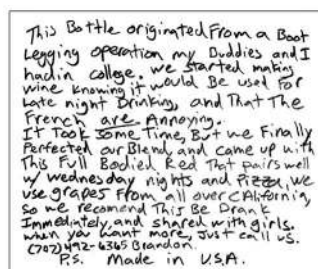 This Bottle originated From a Boot
Legging operation my Buddies and I
had in college. we started making
wine knowing it would Be used for
Late night Drinking, and That The
French are Annoying.
It Took some Time, But we Finally
Perfected our Blend, and came up with
This Full Bodied Red That pairs well
w/ wednesday nights and Pizza, we
use grapes From all over CAlifornia,
So we recomend This Be Drank
Immediately, and shared with girls.
when you want more, Just call us.
(707) 492-6365 Brandon.
P.S. Made in U.S.A.